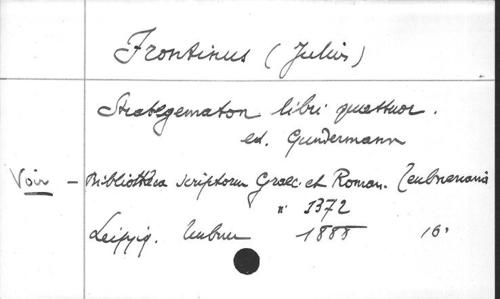 Frontinus (Julius)
Strategematon libri quattuor.
ed. Gundermann
Voir - Bibliotheca scriptorum Graec. et Roman. Teubneriania
n° 1372
Leipzig. Teubner 1888 16°